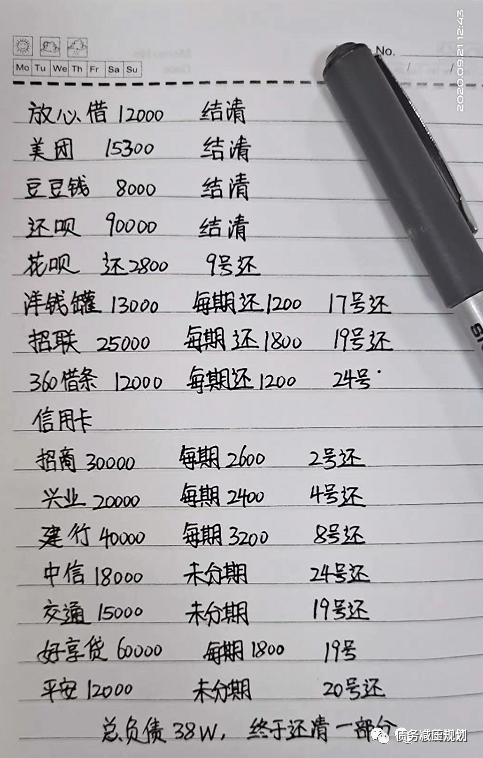 No.
Mo Tu We Th Fr Sa Su
2020.09.21 12:43
放心借 12000 结清
美团 15300 结清
豆豆钱 8000 结清
还呗 90000 结清
花呗 还2800 9号还
洋钱罐 13000 每期还1200 17号还
招联 25000 每期还1800 19号还
360借条 12000 每期还1200 24号
信用卡
招商 30000 每期2600 2号还
兴业 20000 每期2400 4号还
建行 40000 每期3200 8号还
中信 18000 未分期 24号还
交通 15000 未分期 19号还
好享贷 60000 每期1800 19号
平安 12000 未分期 20号还
总负债38W，终于还清一部分
债务减压规划